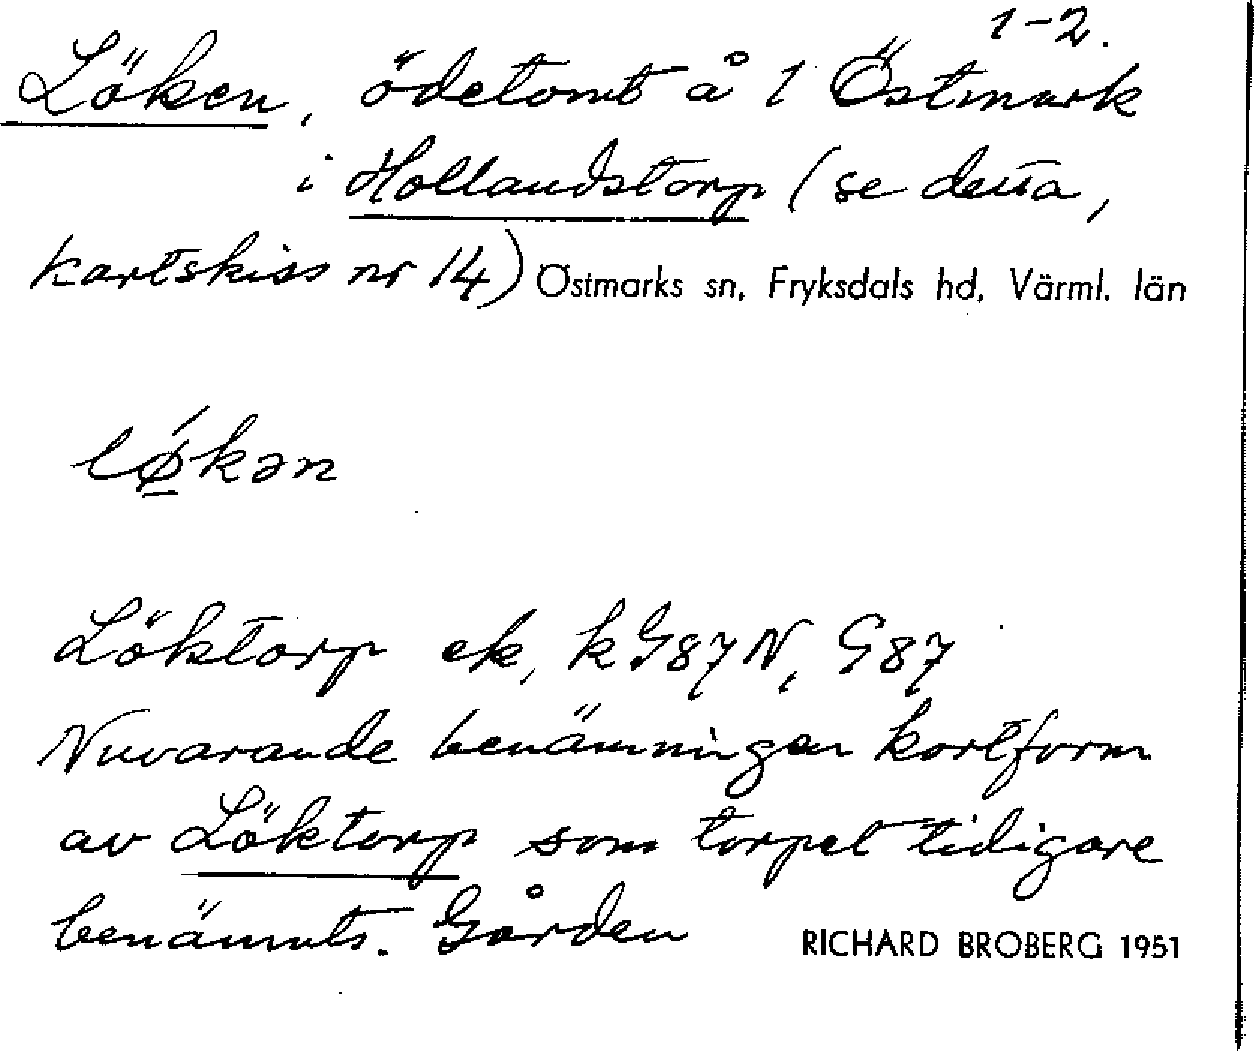 1-2.
Löken, ödetomt å 1 Östmark
i Hollandstorp (se detta,
kartskiss nr 14) Östmarks sn, Fryksdals hd, Värml. län
lǿ̲kən
Löktorp ek, k G87N, G87
Nuvarande benämningen kortform
av Löktorp som torpet tidigare
benämnts. Gården
RICHARD BROBERG 1951